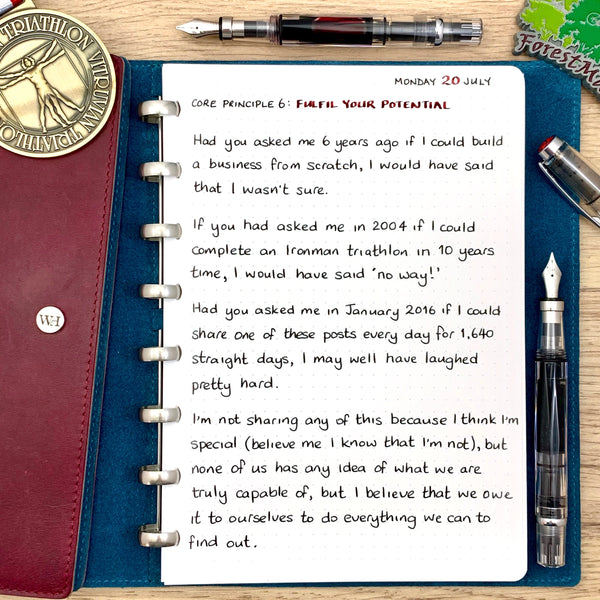 TRIATHLON VITRUVIAN TRIATHLON
ForestM
MONDAY 20 JULY
CORE PRINCIPLE 6: FULFIL YOUR POTENTIAL
Had you asked me 6 years ago if I could build
a business from scratch, I would have said
that I wasn't sure.
If you had asked me in 2004 if I could
complete an Ironman triathlon in 10 years
time, I would have said 'no way!'
Had you asked me in January 2016 if I could
share one of these posts every day for 1,640
straight days, I may well have laughed
pretty hard.
I'm not sharing any of this because I think I'm
special (believe me I know that I'm not), but
none of us has any idea of what we are
truly capable of, but I believe that we owe
it to ourselves to do everything we can to
find out.
WH